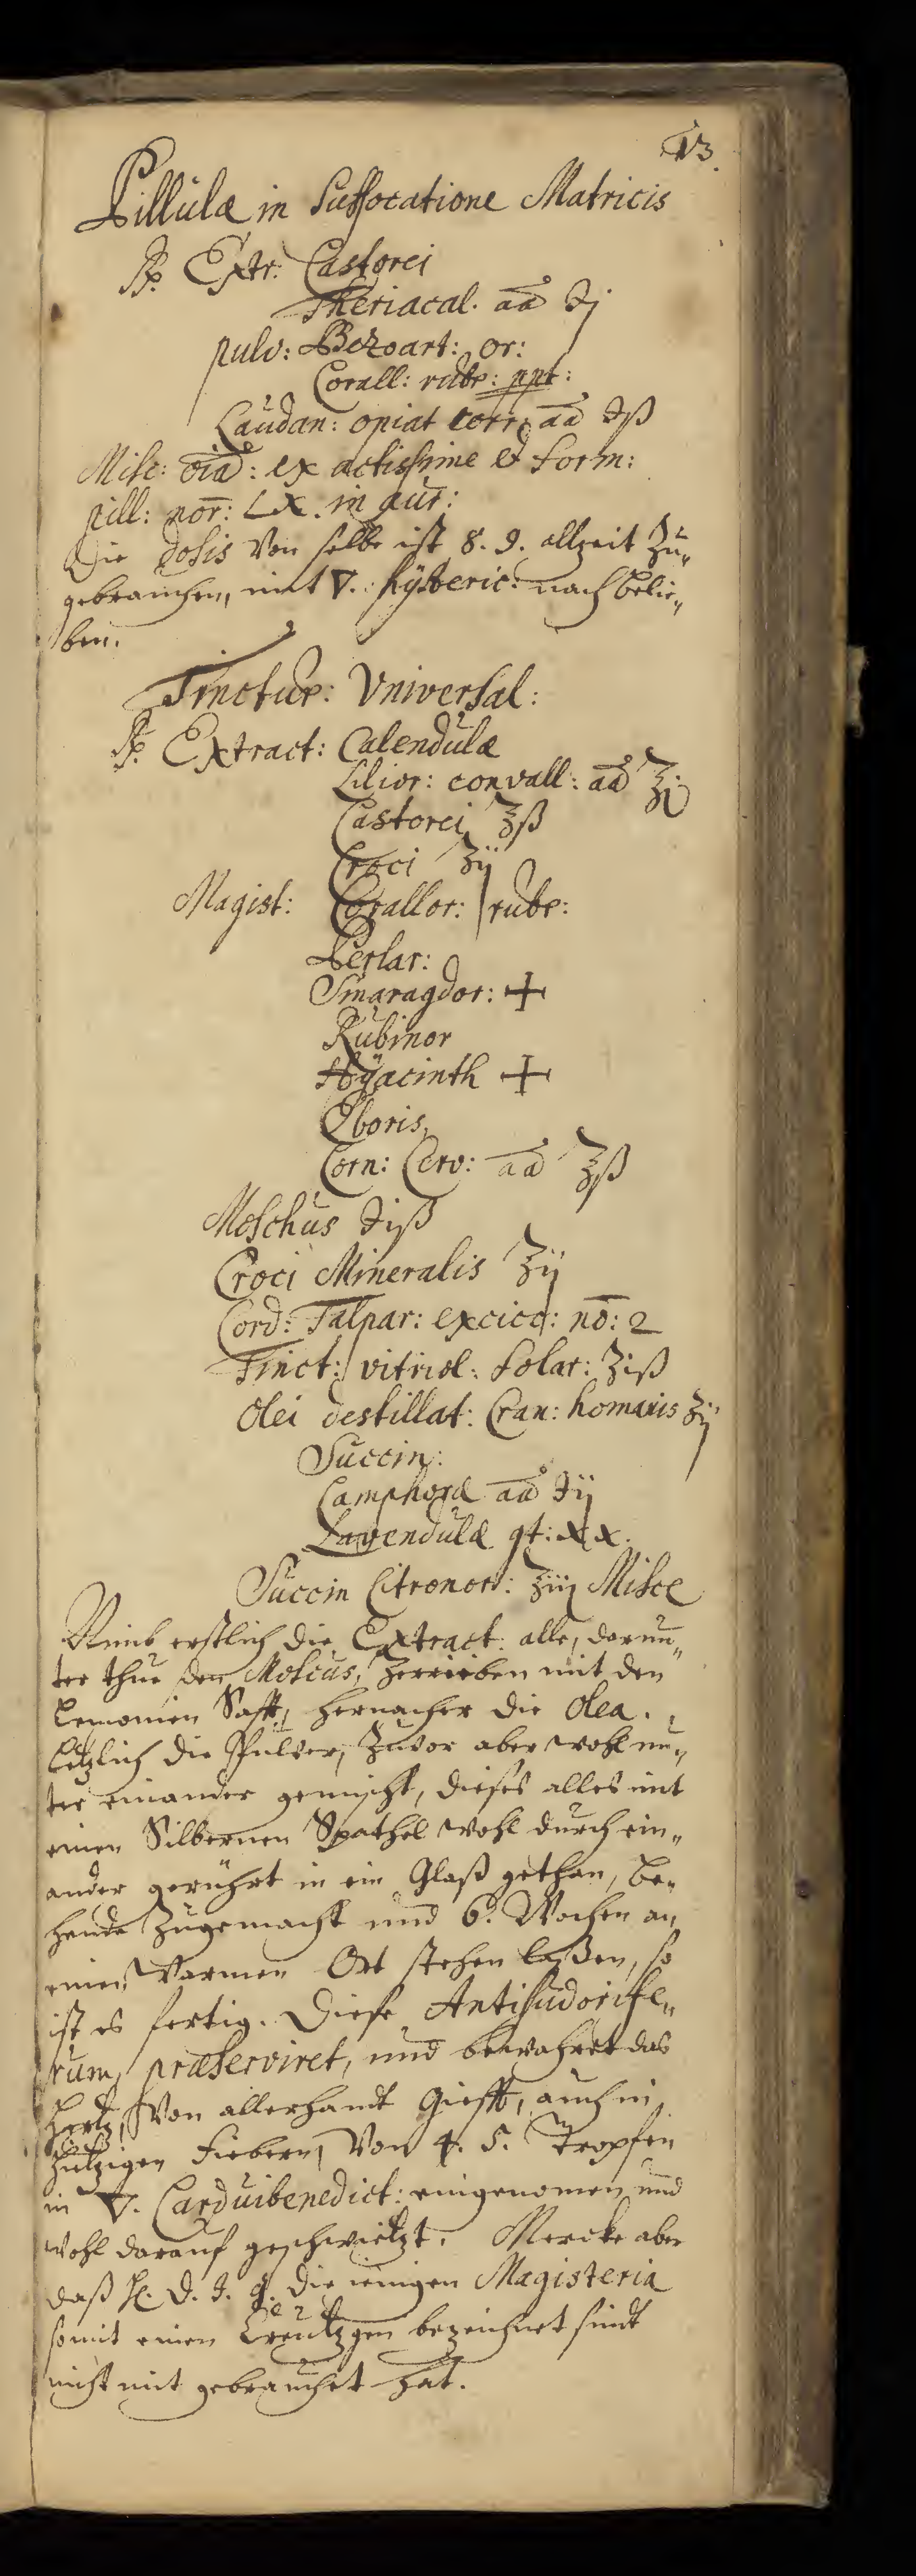 13.
Pillulæ in Suffocatione Matricis
℞. Extr: Castorei
Theriacal. aā ℈j
pulv: Bezoart: or:
Corall: rubr: ppt:
Laudan: opiat corr: aā ℈ß
Misc: oīa: ex actissime et form:
pill: nor: LX. in aur:
Die dosis von selbe ist 8. 9. allzeit zu„
gebrauchen, mit ▽. hÿsteric: nach belie„
ben.
Tinctur: Universal:
℞. Extract: Calendulæ
Lilior: convall: aā ℥j
Castorei ʒß
Croci ʒij
Magist: Corallor: rubr:
Perlar:
Smaragdor: +
Rubinor
Hÿacinth +
Eboris,
Corn: Cerv: aā ʒß
Moschus ℈iß
Croci Mineralis ʒij
Cord: Talpar: exicc: nō: 2
Tinct: vitriol: Solar: ʒiß
Olei destillat: Cran: homanis ʒij
Succin:
Camphoræ aā ℈ij
Lavendulæ gt: xx.
Succin Citronor: ʒiij Misce
Nimb erstlich die Extract: alle, darun„
ter thue den Moscus, zerrieben mit den
Lemonien Safft, hernacher die Olea.
letzlich die Pulver, zuvor aber wohl un„
ter einander gemischt, dieses alles mit
einen Silbernen Spathel wohl durch ein„
ander gerührt in ein Glaß gethan, be„
hende zugemacht und 6. Wochen an
einen Warmen Ort stehen laßen, so
ist es fertig. Diese Antisudorife„
rum, præserviret, und bewahret das
Hertz, von allerhandt Giefft, auch in
hitzigen Fiebern, Von 4. 5. Tropfen
in ▽. Carduibenedict: eingenomen und
wohl darauf geschwietzt. Mercke aber
daß H. D. J. G. die ienigen Magisteria
somit einen Creützgen bezeichnet sindt
nicht mit gebrauchet hat.